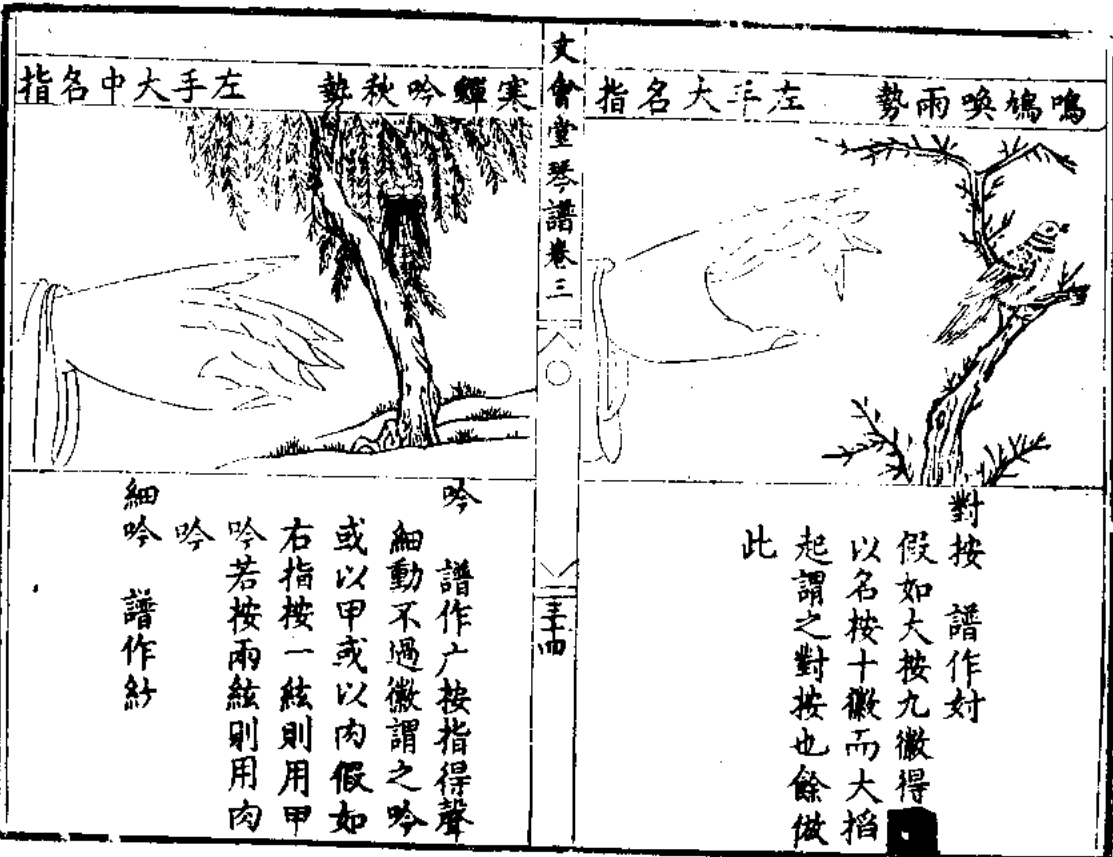 鳴鳩喚雨勢
左手大名指
對按 譜作対
假如大按九徽得
以名按十徽而大搯
起謂之對按也餘倣
此
文會堂琴譜卷三
三十四
寒蟬吟秋勢
左手大中名指
吟 譜作广按指得聲
細動不過徽謂之吟
或以甲或以肉假如
右指按一絃則用甲
吟若按兩絃則用肉
吟
細吟 譜作